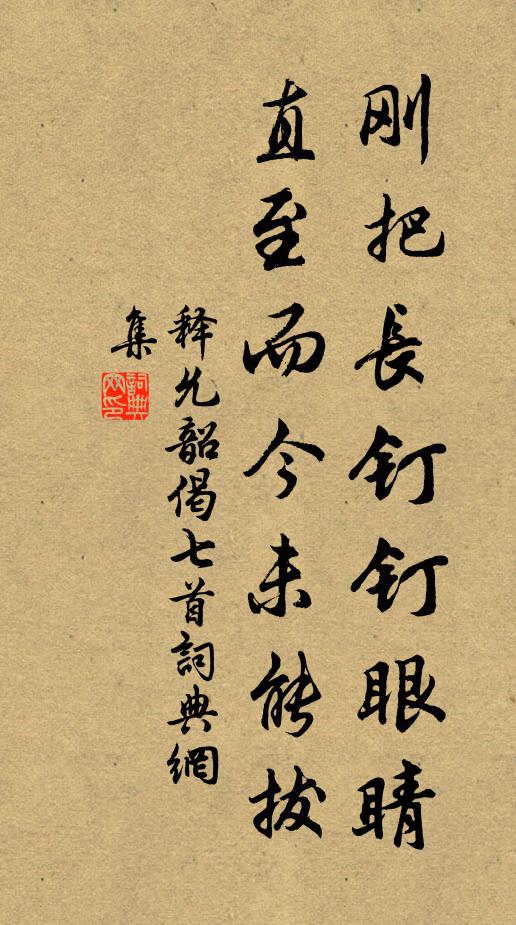 刚把長钉钉眼睛
直至而今未能拔
释允韶偈七首詞典網
集
詞典網印